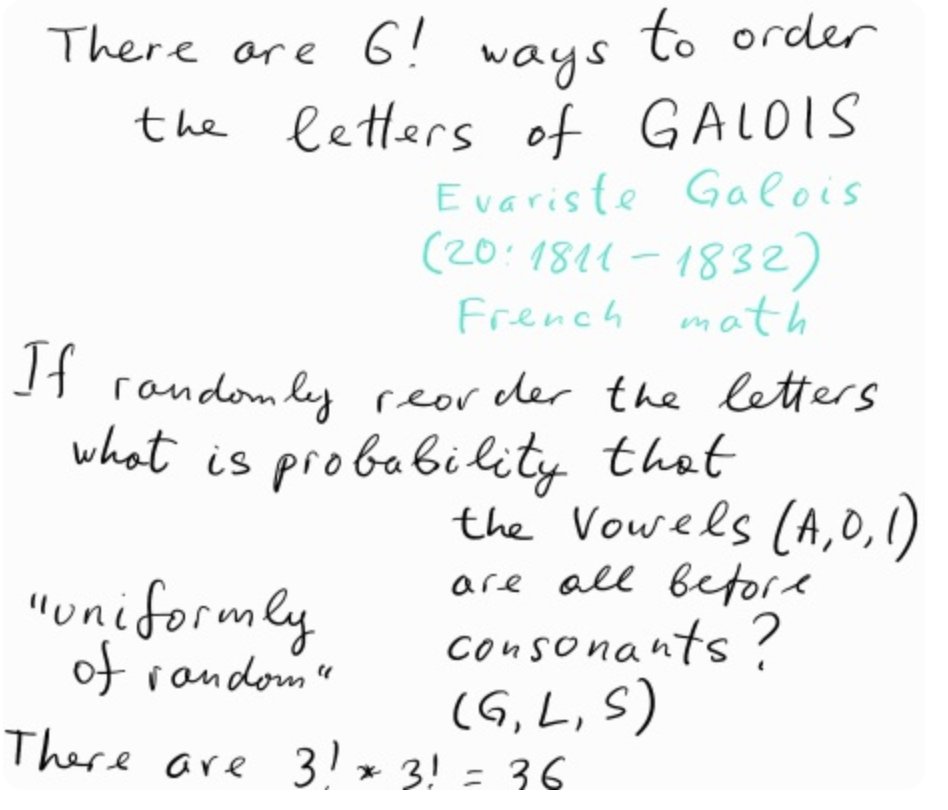 There are 6! ways to order
the letters of GALOIS
Evariste Galois
(20: 1811 – 1832)
French math
If randomly reorder the letters
what is probability that
the Vowels (A,O,I)
are all before
consonants?
(G, L, S)
"uniformly
of random"
There are 3! * 3! = 36